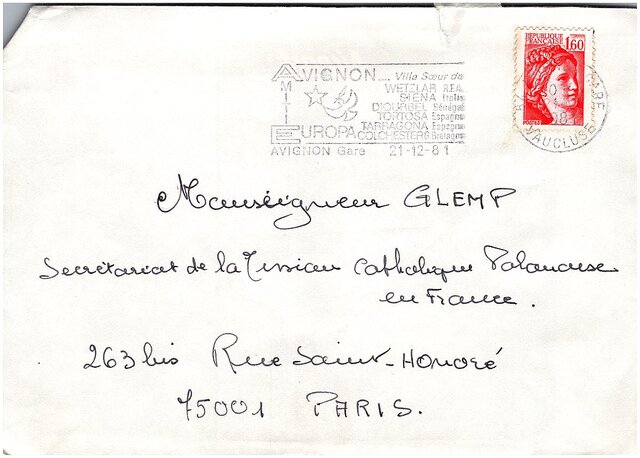 AVIGNON.... Ville Sœur de
WETZLAR R.F.A.
SIENA Italie
DIOURBEL Sénégal
TORTOSA Espagne
TARRAGONA Espagne
COLCHESTER G Bretagne
AMITIE
EUROPA
AVIGNON Gare 21-12-81
REPUBLIQUE
FRANCAISE
1,60
POSTES
GARE
VAUCLUSE
Monseigneur GLEMP
Secrétariat de la Mission Catholique Polonaise
en France.
263 bis Rue Saint-Honoré
75001 PARIS.